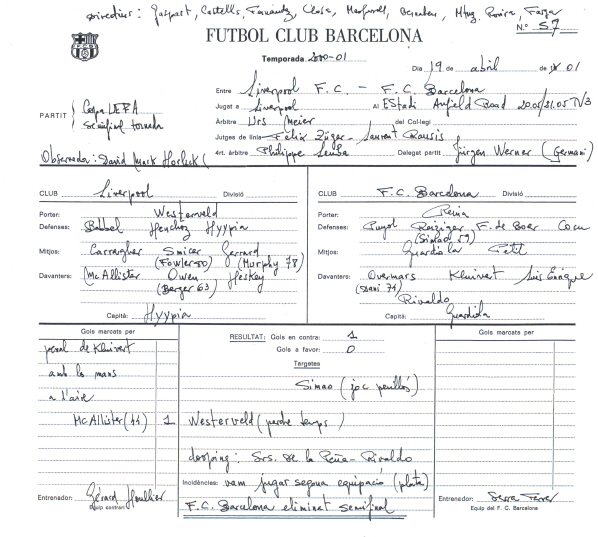 Directius: Gaspart, Castells, Fernández, Closa, Masfurroll, Mtnez. Rovira, Faixa
N.º 57
FUTBOL CLUB BARCELONA
Temporada 2000-01
Dia 19 de abril de 01
Entre Liverpool F.C. - F.C. Barcelona
Jugat a Liverpool Al Estadi Anfield Road 20.05/21.05 TV3
PARTIT Copa UEFA
semifinal tornada
Àrbitre Urs Meier del Col·legi
Jutges de línia Felix Züger - Laurent Rausis
Observador: David Mark Horlock (
Art. àrbitre Philippe Leuba Delegat partit Jürgen Werner (Germani)
CLUB Liverpool Divisió
Porter: Westerveld
Defenses: Babbel Henchoz Hyypia
Mitjos: Carragher Smicer Gerrard
(Fowler 80) (Murphy 78)
Davanters: McAllister Owen Heskey
(Berger 63)
Capità: Hyypia
CLUB F.C. Barcelona Divisió
Porter: Reina
Defenses: Puyol Reiziger F. de Boer Cocu
(Simao 59)
Mitjos: Guardiola Petit
Davanters: Overmars Kluivert Luis Enrique
(Dani 71)
Rivaldo
Capità: Guardiola
Gols marcats per
penal de Kluivert
amb les mans
a l'aire
McAllister (44) 1
Entrenador: Gérard Houllier
Equip contrari
RESULTAT: Gols en contra: 1
Gols a favor: 0
Targetes
Simao (joc perillós)
Westerveld (perdre temps)
dooping: Srs. de la Peña - Rivaldo
Incidències: vam jugar segona equipació (plata)
F.C. Barcelona eliminat semifinal
Gols marcats per
Entrenador: Serra Ferrer
Equip del F. C. Barcelona